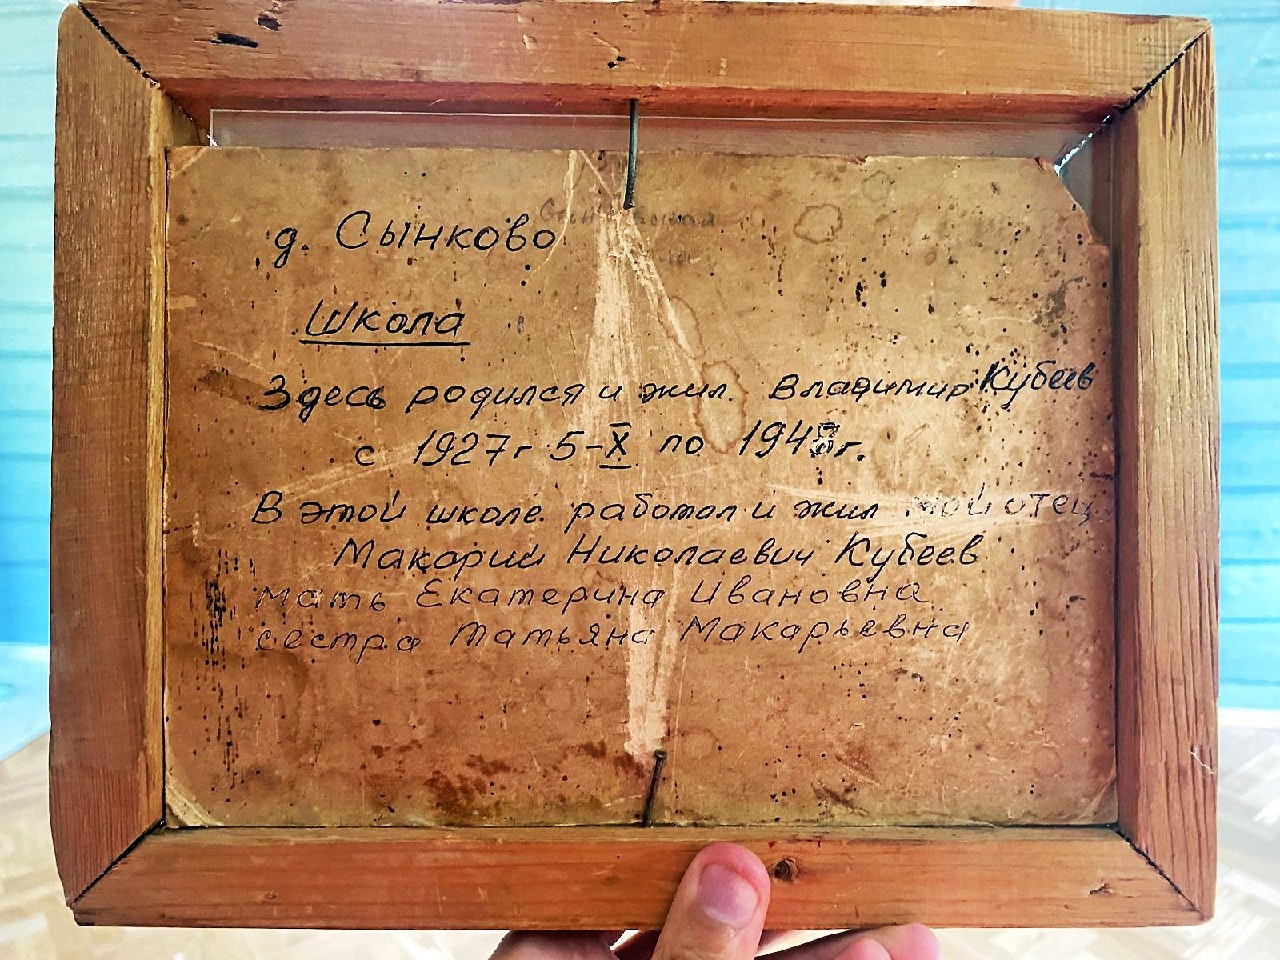 д. Сынково
Школа
Здесь родился и жил Владимир Кубеев
с 1927г 5-X по 1948г.
В этой школе работал и жил мой отец
Макарий Николаевич Кубеев
мать Екатерина Ивановна
сестра Татьяна Макарьевна